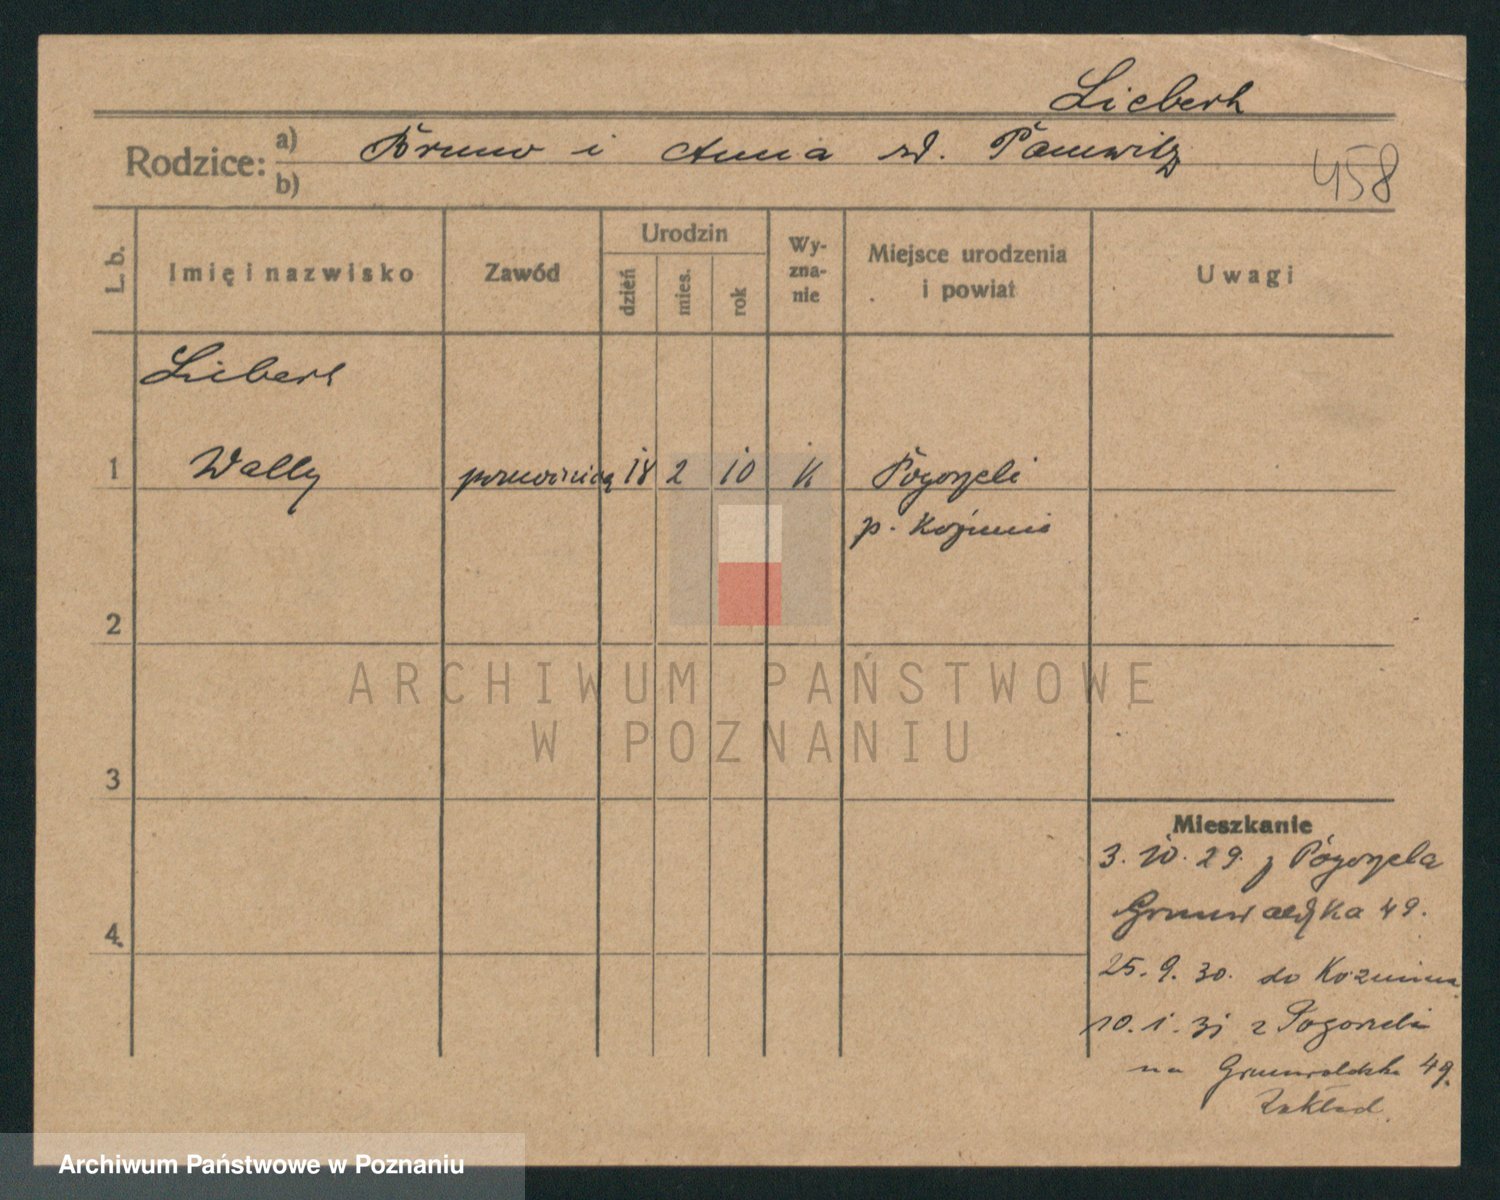 Liebert
Rodzice: a) Bruno i Anna zd. Panewitz
b)
458
L. b.
Imię i nazwisko
Zawód
Urodzin
dzień
mies.
rok
Wy-
zna-
nie
Miejsce urodzenia
i powiat
Uwagi
Liebert
1 Wally 18 2 10 k Pogorzeli
p. Koźmin
2
3
4
Mieszkanie
3. 10. 29. z Pogorzela
Grunwaldzka 49.
25. 9. 30. do Kozmina
10. 1. 31 z Pogorzeli
na Grunwaldzka 49.
Zakład.
ARCHIWUM PAŃSTWOWE
W POZNANIU
Archiwum Państwowe w Poznaniu